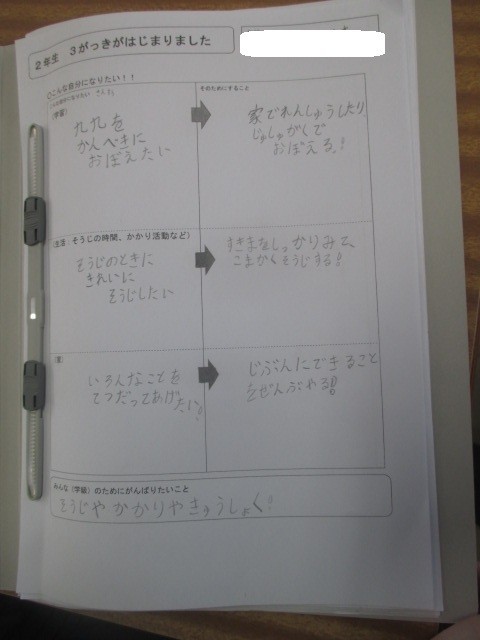 2年生 3がっきがはじまりました
◇こんな自分になりたい！！
そのためにすること
(学習)
九九を
かんぺきに
おぼえたい
家でれんしゅうしたり
じしゅがくで
おぼえる!
(生活：そうじの時間、かかり活動など)
そうじのときに
きれいに
そうじしたい
すきまをしっかりみて、
こまかくそうじする!
いろんなことを
てつだってあげたい!
じぶんにできること
をぜんぶやる!
みんな（学級）のためにがんばりたいこと
そうじやかかりやきゅうしょく!